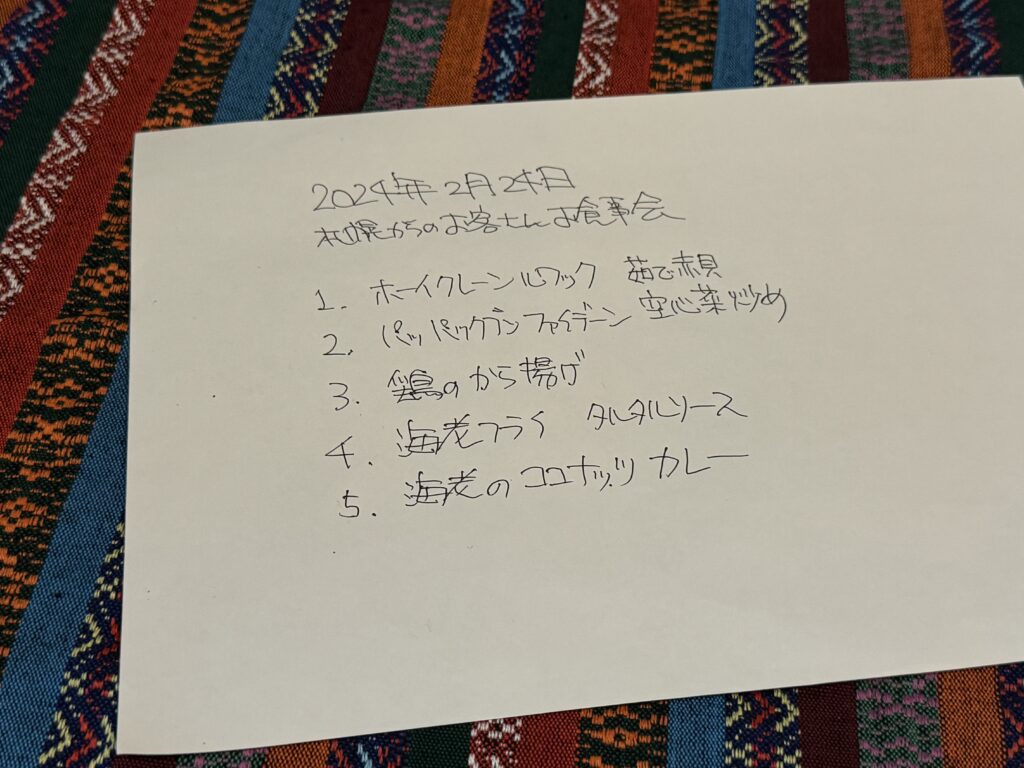 2024年2月24日
札幌からのお客さんお食事会
1. ホーイクレーンルワック 茹で赤貝
2. パッパックブンファイデーン 空心菜炒め
3. 鶏のから揚げ
4. 海老フライ タルタルソース
5. 海老のココナッツカレー